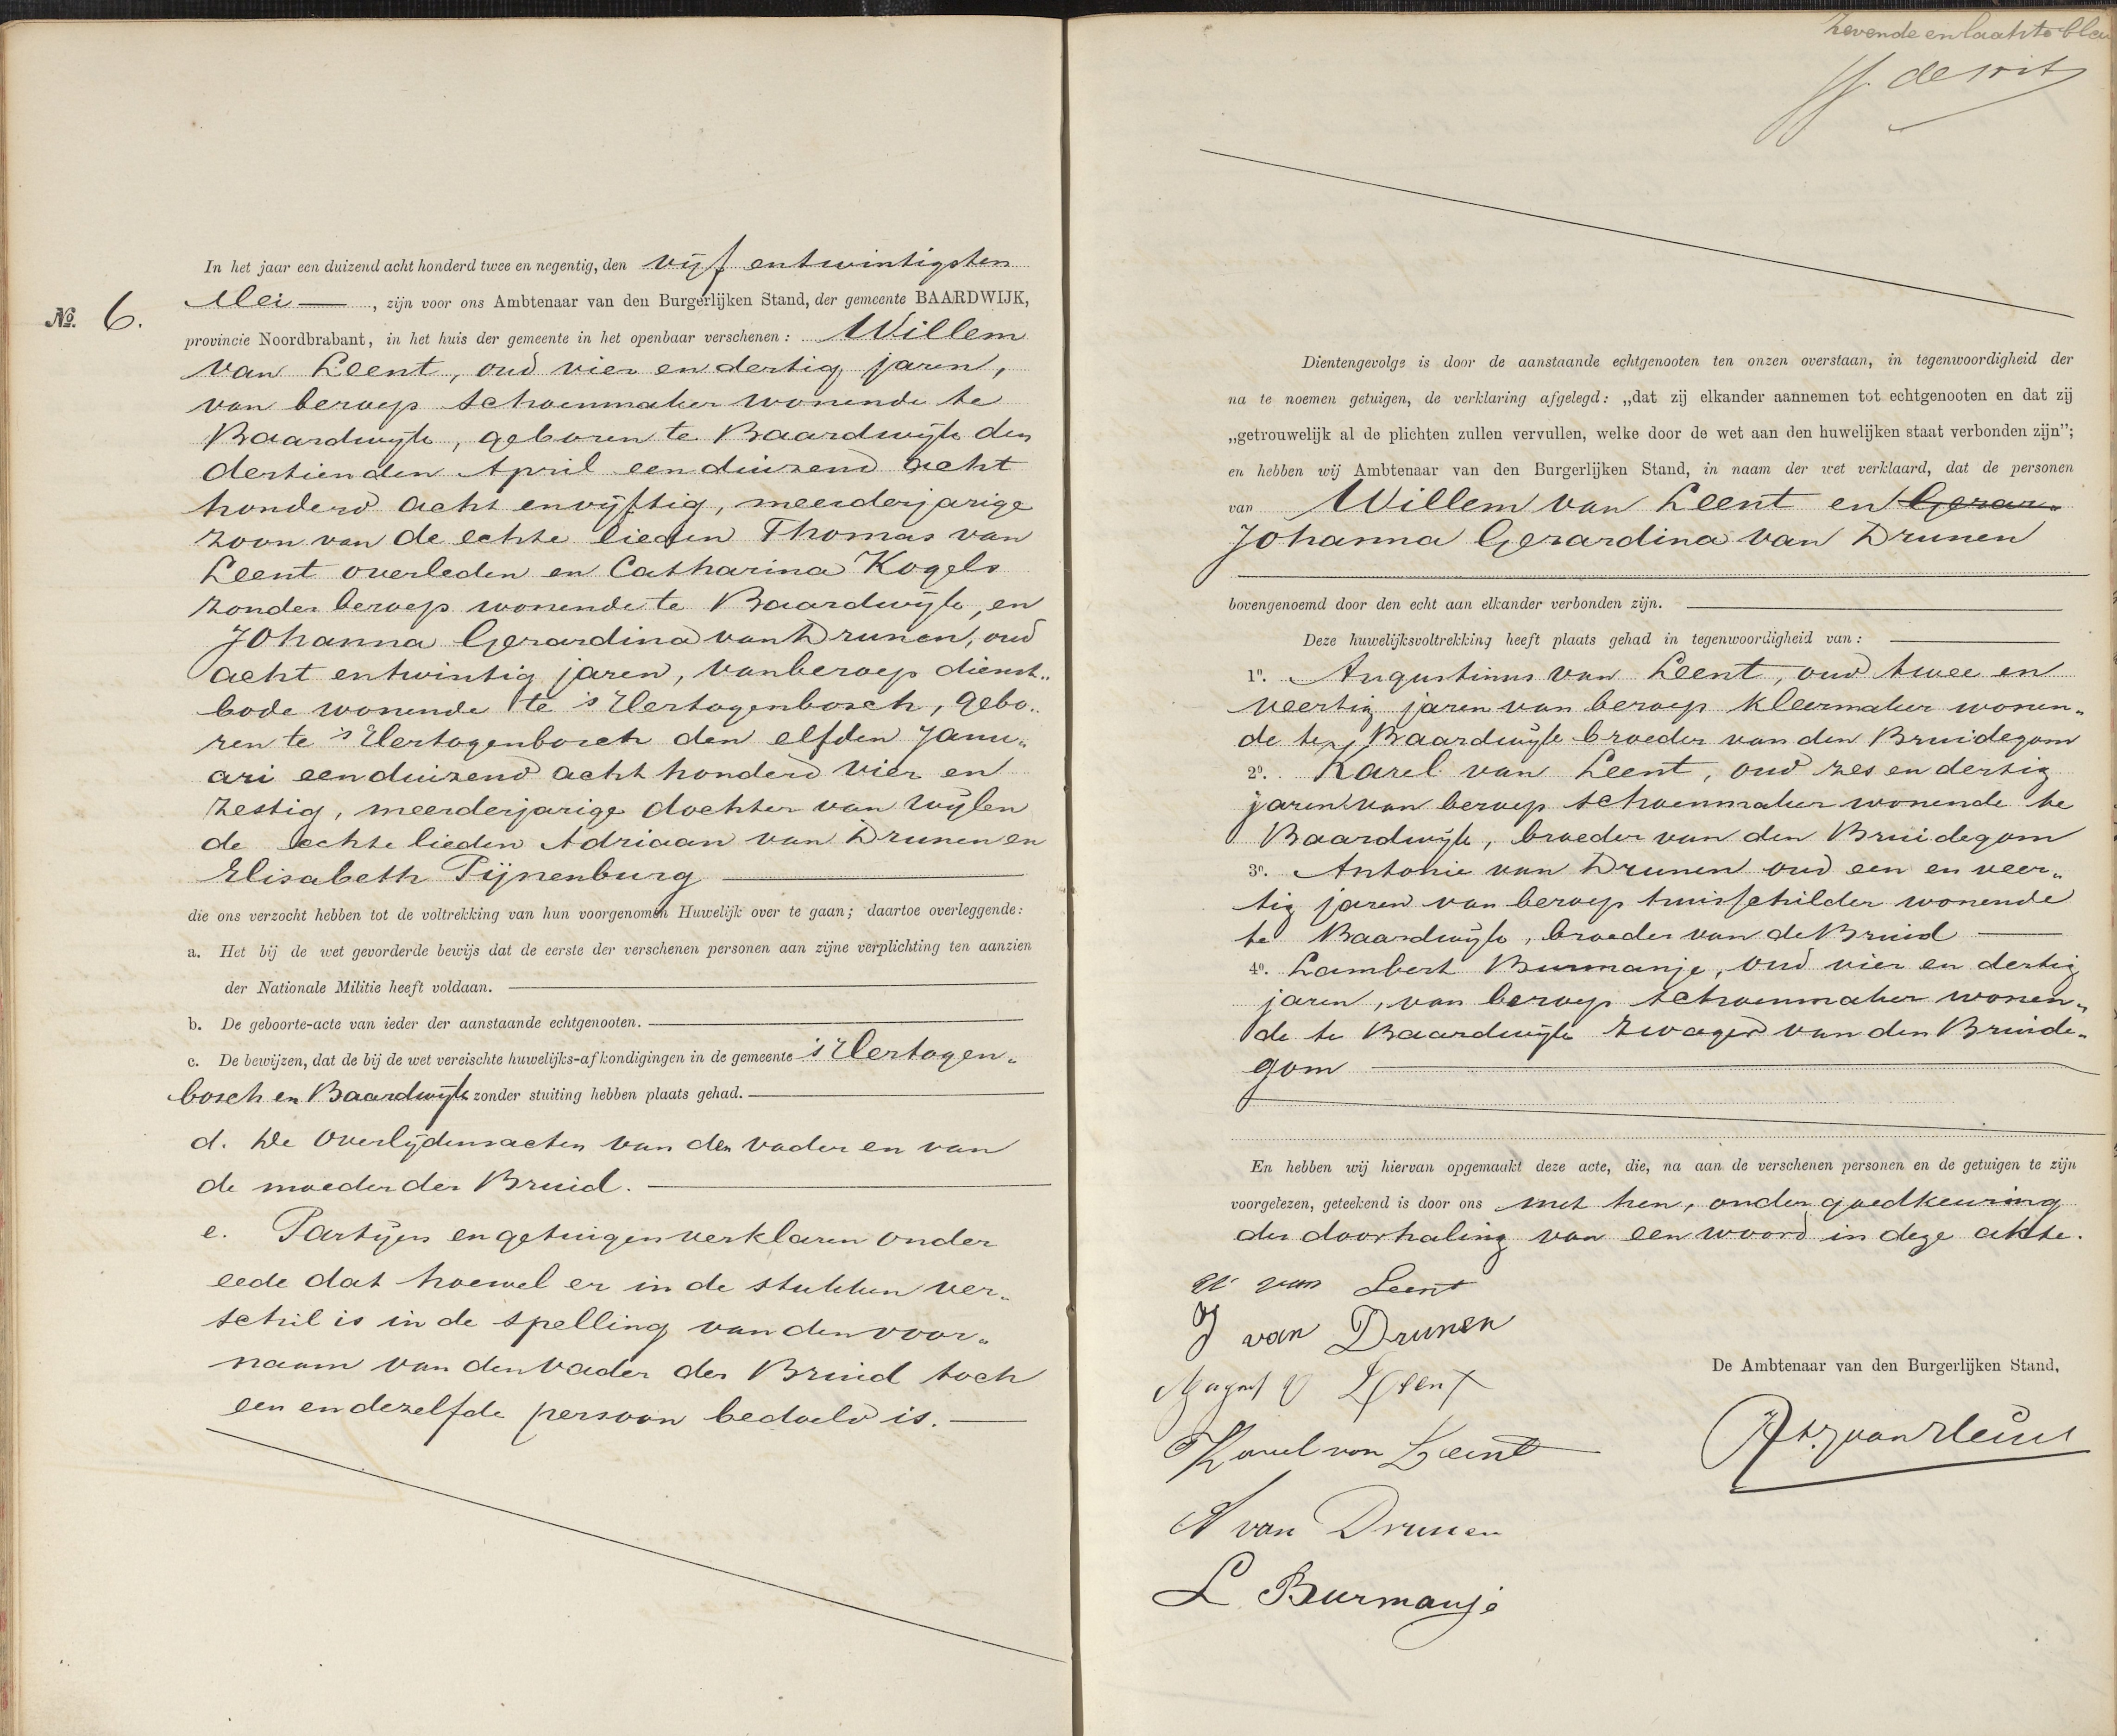 No. 6.
In het jaar een duizend acht honderd twee en negentig, den vijf entwintigsten
Mei —, zijn voor ons Ambtenaar van den Burgerlijken Stand, der gemeente BAARDWIJK,
provincie Noordbrabant, in het huis der gemeente in het openbaar verschenen: Willem
van Leent, oud vier en dertig jaren,
van beroep schoenmaker wonende te
Baardwijk, geboren te Baardwijk den
dertienden April een duizend acht
honderd acht envijftig, meerderjarige
zoon van de echte lieden Thomas van
Leent overleden en Catharina Kogels
zonder beroep wonende te Baardwijk, en
Johanna Gerardina van Drunen, oud
acht entwintig jaren, van beroep dienst„
bode wonende te 's Hertogenbosch, gebo„
ren te 's Hertogenbosch den elfden Janu„
ari een duizend acht honderd vier en
zestig, meerderjarige dochter van wijlen
de echte lieden Adriaan van Drunen en
Elisabeth Pijnenburg
die ons verzocht hebben tot de voltrekking van hun voorgenomen Huwelijk over te gaan; daartoe overleggende:
a. Het bij de wet gevorderde bewijs dat de eerste der verschenen personen aan zijne verplichting ten aanzien
der Nationale Militie heeft voldaan.
b. De geboorte-acte van ieder der aanstaande echtgenooten.
c. De bewijzen, dat de bij de wet vereischte huwelijks-afkondigingen in de gemeente 's Hertogen„
bosch en Baardwijk zonder stuiting hebben plaats gehad.
d. De overlijdensacten van den vader en van
de moeder der Bruid.
e. Partijen en getuigen verklaren onder
eede dat hoewel er in de stukken ver„
schil is in de spelling van den voor„
naam van den vader der Bruid toch
een en dezelfde persoon bedoeld is.
Zevende en laatste bla
de Wit
Dientengevolge is door de aanstaande echtgenooten ten onzen overstaan, in tegenwoordigheid der
na te noemen getuigen, de verklaring afgelegd: „dat zij elkander aannemen tot echtgenooten en dat zij
„getrouwelijk al de plichten zullen vervullen, welke door de wet aan den huwelijken staat verbonden zijn";
en hebben wij Ambtenaar van den Burgerlijken Stand, in naam der wet verklaard, dat de personen
van Willem van Leent en Gerar„
Johanna Gerardina van Drunen
bovengenoemd door den echt aan elkander verbonden zijn.
Deze huwelijksvoltrekking heeft plaats gehad in tegenwoordigheid van:
1o. Augustinus van Leent, oud twee en
veertig jaren van beroep kleermaker wonen„
de te Baardwijk broeder van den Bruidegom
2o. Karel van Leent, oud zes en dertig
jaren van beroep schoenmaker wonende te
Baardwijk, broeder van den Bruidegom
3o. Antonie van Drunen oud een en veer„
tig jaren van beroep huisschilder wonende
te Baardwijk, broeder van de Bruid
4o. Lambert Burmanje, oud vier en dertig
jaren, van beroep schoenmaker wonen„
de te Baardwijk zwager van den Bruide„
gom
En hebben wij hiervan opgemaakt deze acte, die, na aan de verschenen personen en de getuigen te zijn
voorgelezen, geteekend is door ons met hen, onder goedkeuring
der doorhaling van een woord in deze akte.
W van Leent
J van Drunen
August V Leent
De Ambtenaar van den Burgerlijken Stand,
Karel van Leent
A van Drunen
L Burmanje